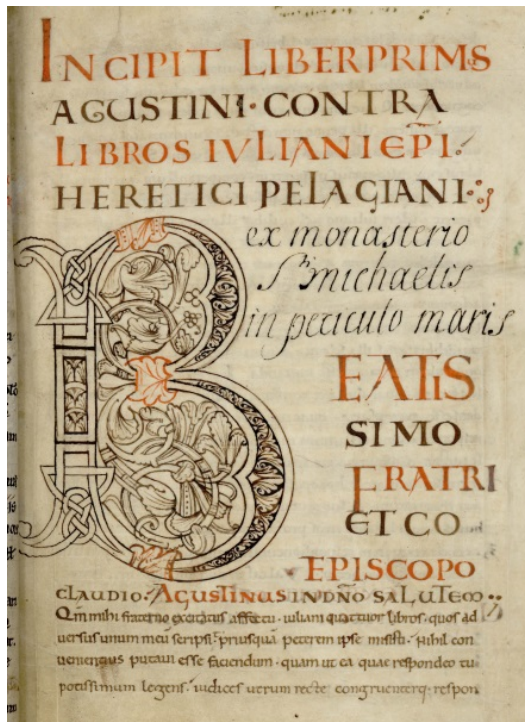 INCIPIT LIBER PRIMS
AGUSTINI · CONTRA
LIBROS IVLIANI EP̄I.
HERETICI PELAGIANI
ex monasterio
Sti michaelis
in periculo maris
BEATIS
SIMO
FRATRI
ET CO
EPISCOPO
CLAUDIO · AGUSTINUS IN DNO SALUTEM
Qm mihi fraterno excitatus affectu · iuliani quattuor libros · quos ad
versus unum meū scripsit priusquā peterem ipse misisti · Nihil con
venientius putavi esse faciendum · quam ut ea quae respondeo tu
potissimum legens · iudices utrum recte congruenterq · respon